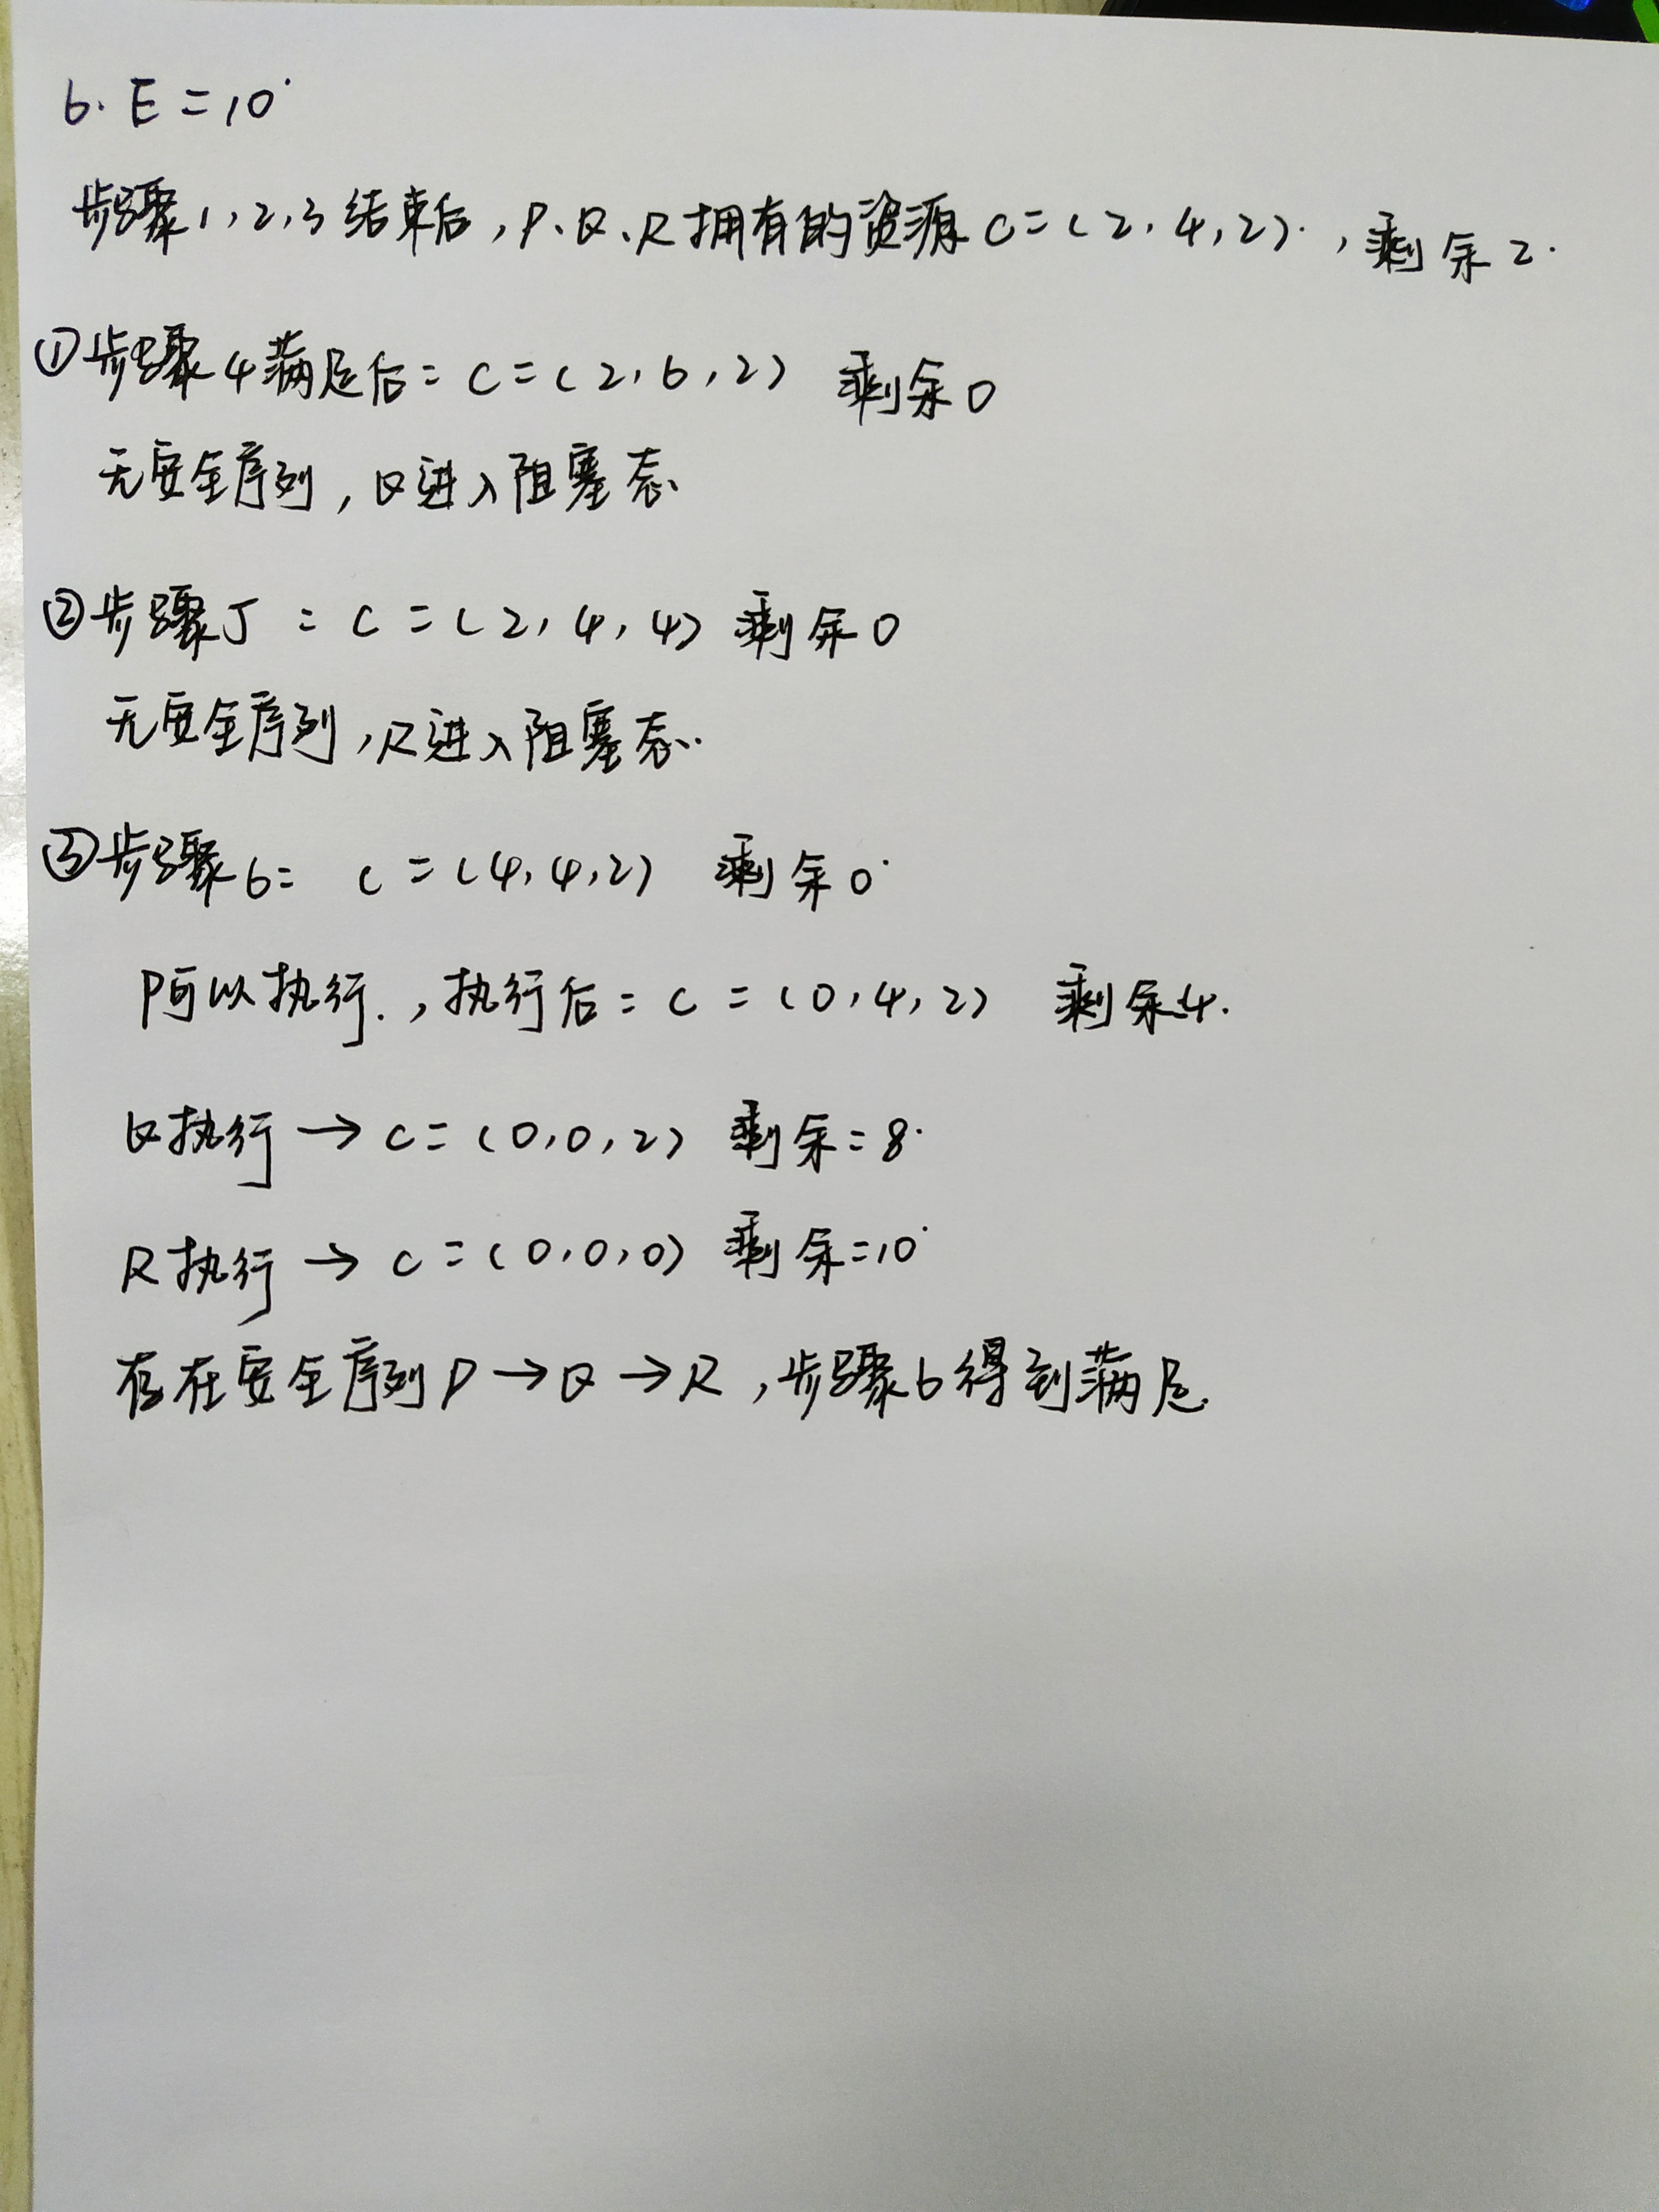 6. E=10
步骤1,2,3结束后,P、Q、R拥有的资源C=(2,4,2),剩余2.
①步骤4满足后: C=(2,6,2) 剩余0
无安全序列,Q进入阻塞态.
②步骤5: C=(2,4,4) 剩余0
无安全序列,R进入阻塞态.
③步骤6: C=(4,4,2) 剩余0
P可以执行.,执行后: C=(0,4,2) 剩余4.
Q执行→C=(0,0,2) 剩余=8.
R执行→C=(0,0,0) 剩余=10
存在安全序列P→Q→R,步骤6得到满足.